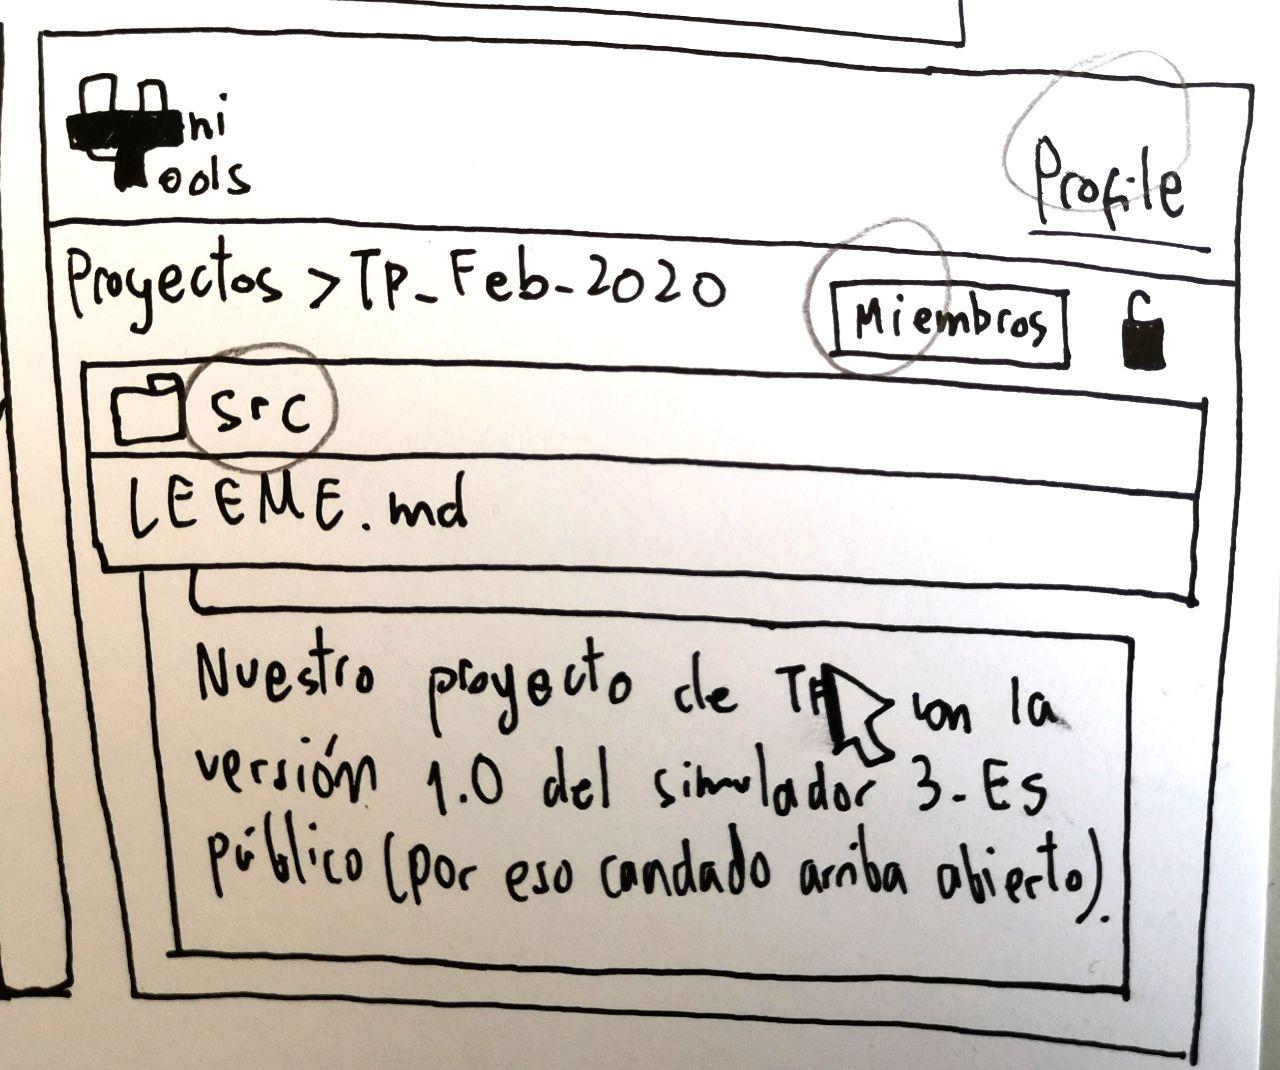 ni
ools
Profile
Proyectos > TP_Feb-2020
Miembros
src
LEEME.md
Nuestro proyecto de con la
versión 1.0 del simulador 3. Es
público (por eso candado arriba abierto).